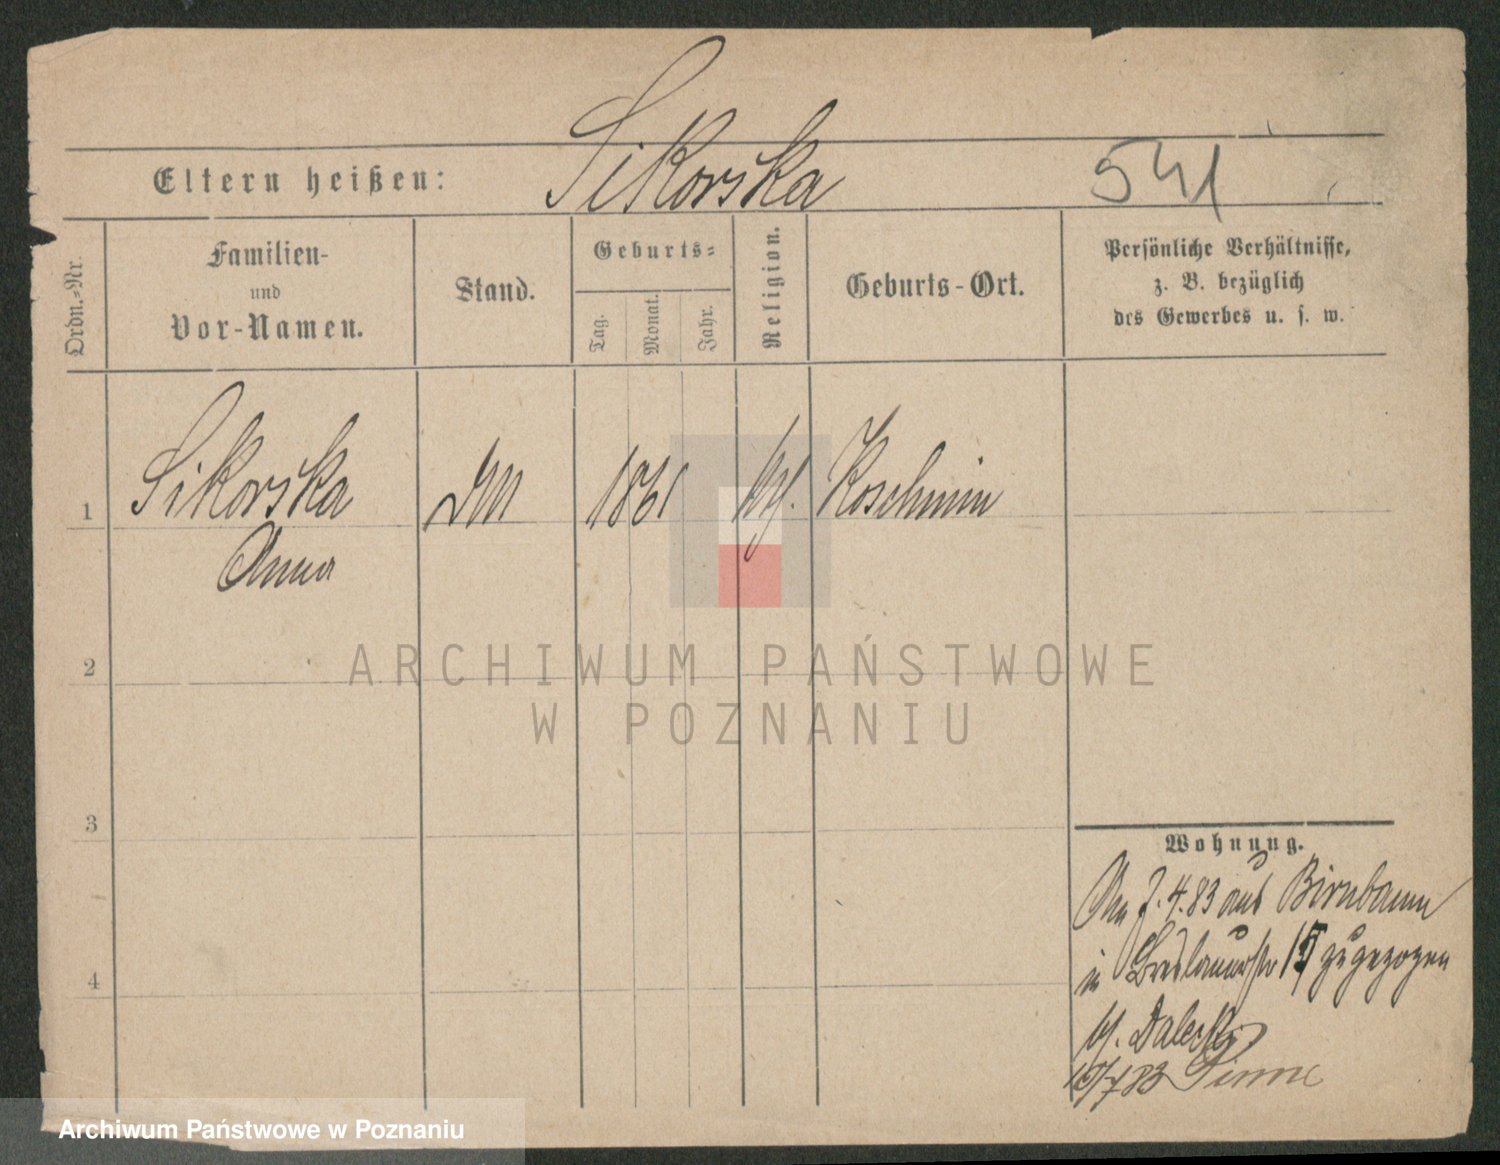 Sikorska
Eltern heißen:
541
Ordn.-Nr.
Familien-
und
Vor-Namen.
Stand.
Geburts-
Tag.
Monat.
Jahr.
Religion.
Geburts-Ort.
Persönliche Verhältnisse,
z. B. bezüglich
des Gewerbes u. s. w.
1
Sikorska
1861
Koschmin
Anna
2
3
4
ARCHIWUM PAŃSTWOWE
W POZNANIU
Wohnung.
7.4.83 aus Birnbaum
in Breslauerstr 15 zugezogen
Pinne
Archiwum Państwowe w Poznaniu